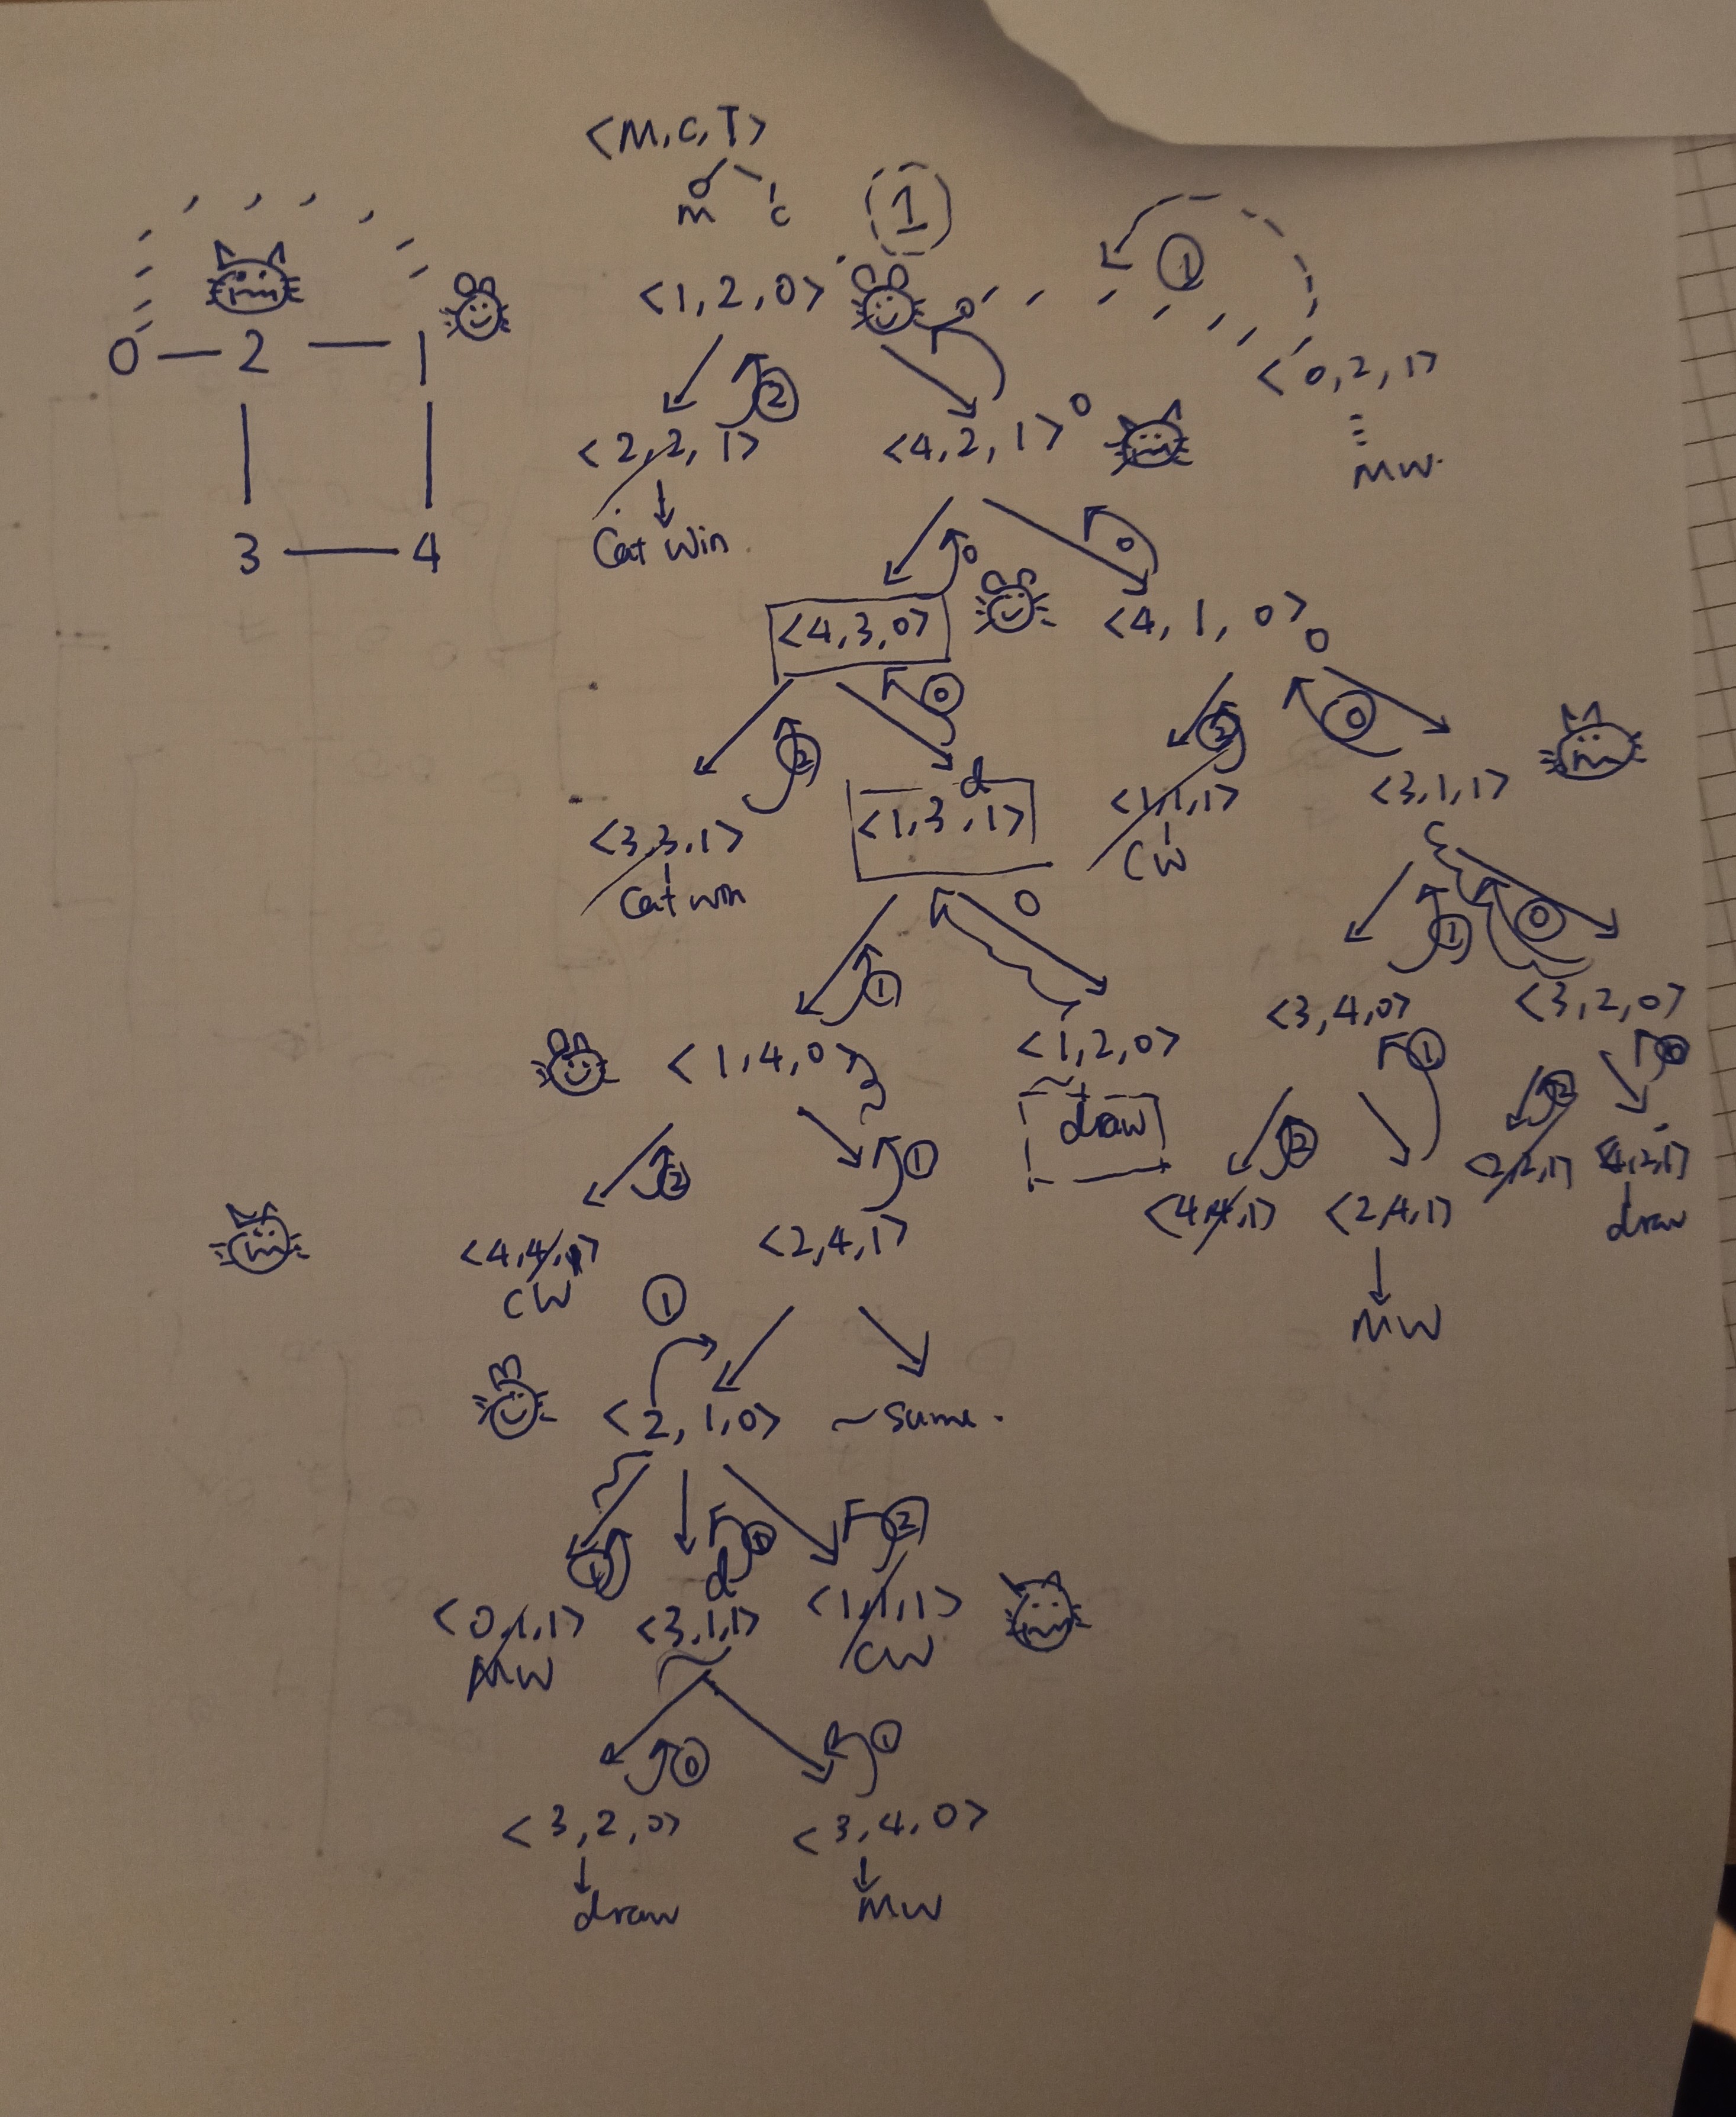 <M, C, T>
0 1
m c
1
<1, 2, 0>
1
0 — 2 — 1
3 — 4
2
0
<0, 2, 1>
MW.
<2, 2, 1>
Cat Win
<4, 2, 1> 0
0
0
<4, 3, 0>
<4, 1, 0> 0
2
0
2
0
<3, 3, 1>
Cat win
d
<1, 3, 1>
<1, 1, 1>
CW
<3, 1, 1>
1
0
1
0
<1, 4, 0>
<1, 2, 0>
draw
<3, 4, 0>
<3, 2, 0>
2
1
2
1
2
<4, 4, 1>
CW
<2, 4, 1>
<4, 4, 1>
<2, 4, 1>
MW
<2, 2, 1>
<4, 2, 1>
draw
1
<2, 1, 0>
~same.
1
d
2
<0, 1, 1>
MW
<3, 1, 1>
<1, 1, 1>
CW
0
1
<3, 2, 0>
draw
<3, 4, 0>
MW